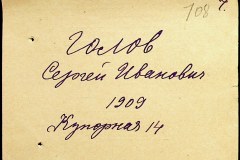 108
7.
Голов
Сергей Иванович
1909
Купорная 14